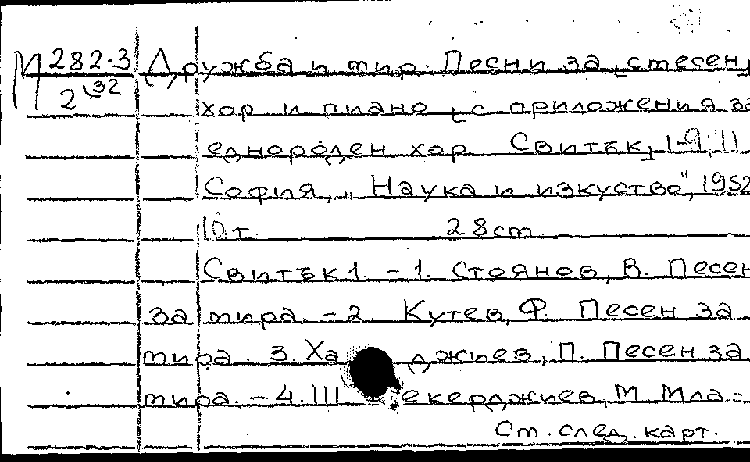 М 282.3 Дружба и мир. Песни за смесен
2 32 хор и пиано, с приложения за
еднороден хор. Свитък, 1-9, 11
София, „Наука и изкуство", 1952
10 т. 28 cm
Свитък 1. - 1. Стоянов, В. Песен
за мира. - 2. Кутев, Ф. Песен за
мира. 3. Ха джиев, П. Песен за
мира. - 4. Шекерджиев, М. Мла-
См. след. карт.